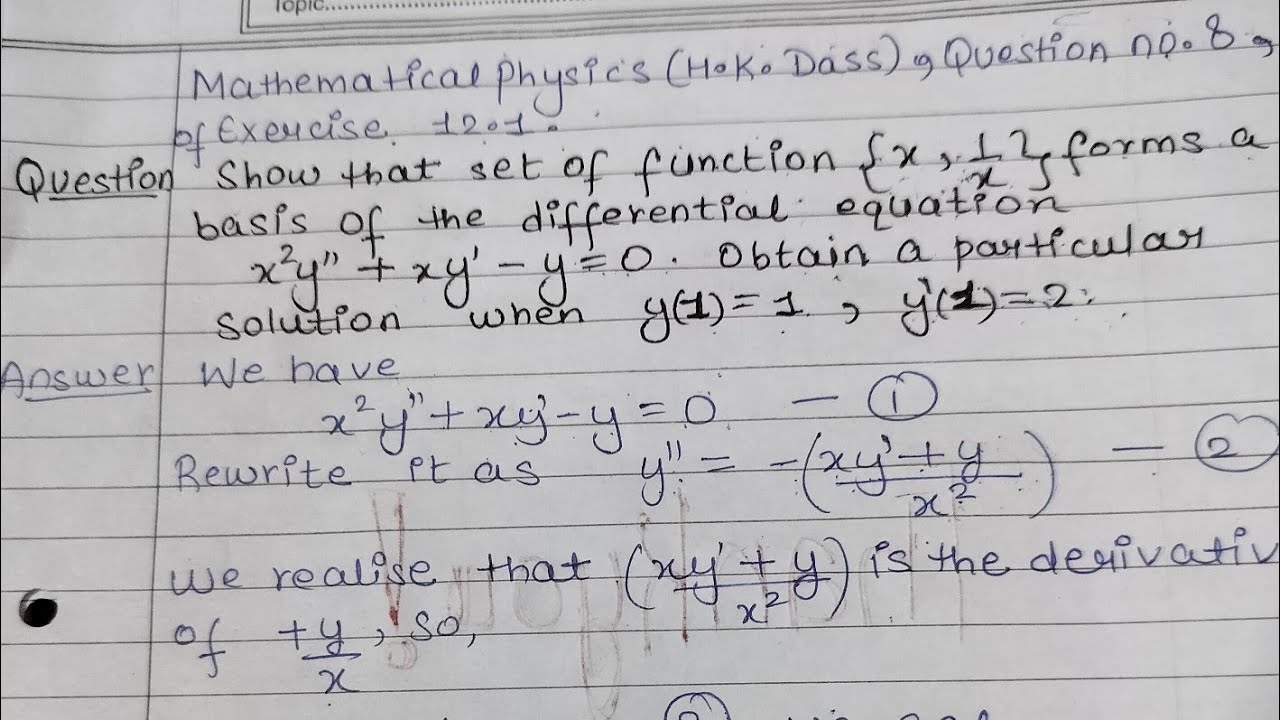 Topic
Mathematical physics (H.K. Dass), Question no. 8,
of Exercise 12.1.
Question Show that set of function {x, 1/x} forms a
basis of the differential equation
x²y'' + xy' - y = 0. Obtain a particular
solution when y(1) = 1, y'(1) = 2.
Answer We have
x²y'' + xy' - y = 0 — ①
Rewrite it as y'' = -(xy' + y / x²) — ②
We realise that (xy' + y / x²) is the derivativ
of + y/x, so,